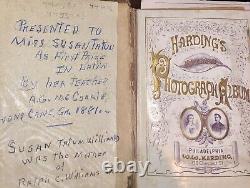 PRESENTED TO
MISS SUSAN TATUM
AS FIRST PRIZE
IN LATIN
BY HER TEACHER
A.G. McCorkle,
LONE CANE, GA. 1880
SUSAN TATUM WILLIAMS
WAS THE MOTHER
OF
RALPH C. WILLIAMS
HARDING'S
PHOTOGRAPH ALBUM
PHILADELPHIA
W.W. HARDING,